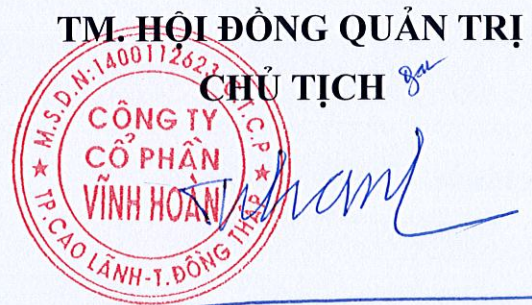 TM. HỘI ĐỒNG QUẢN TRỊ
CHỦ TỊCH
M.S.D.N:1400112623 - C.T.C.P
CÔNG TY
CỔ PHẦN
VĨNH HOÀN
TP.CAO LÃNH-T.ĐỒNG THÁP